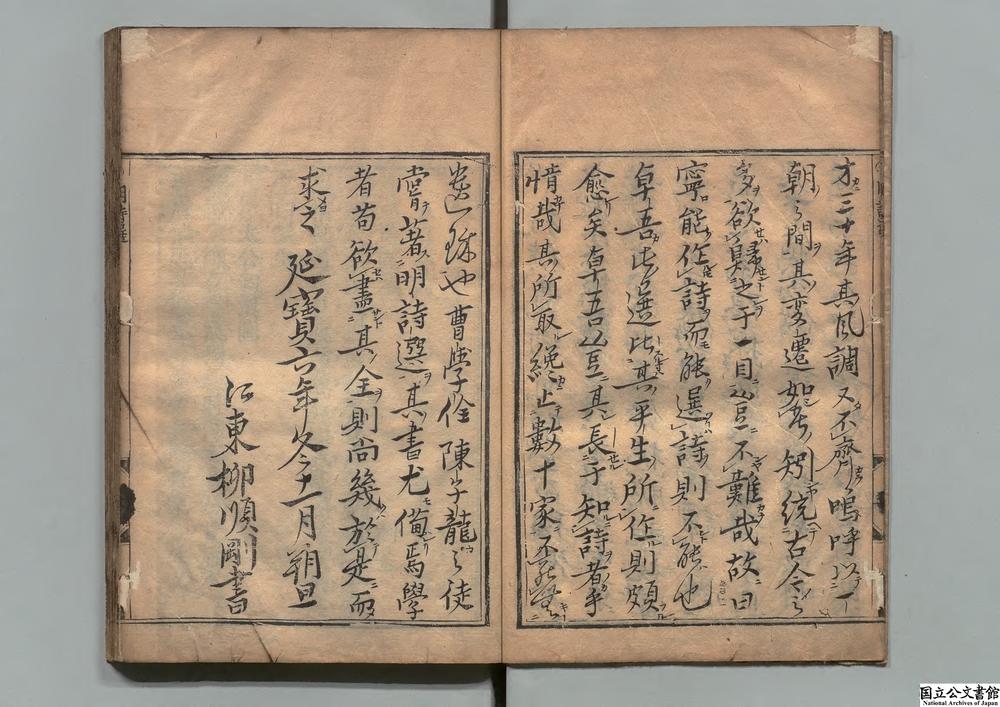 才二十年其風調又不齊嗚呼以一
朝之間其変遷如此矧統古今之
多欲歸之于一目豈不難哉故曰
寧能作詩而能選詩則不能也
卓吾此選比其平生所作則頗
愈矣卓吾豈其長于知詩者乎
惜哉其所取纔止數十家不能無
遺珠也曹學佺陳子龍之徒
嘗著明詩選其書尤備焉學
者苟欲盡其全則尚幾於是而
求之 延寶六年冬十一月朔旦
江東柳順剛書
国立公文書館
National Archives of Japan